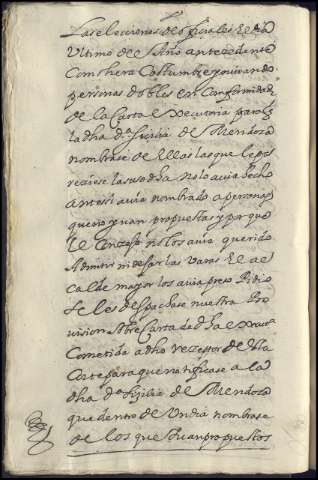 Las elecciones de oficiales el dia
Ultimo del Año antecedente
Como hera Costumbre y nombrando
personas dobles en Conformidad
de la Carta executoria para q̃
la dha dª de Mendoza
nombrase de ellas las que le pa
reciese la suso dha no lo auia hecho
antes si auia nombrado a personas
que no yuan propuestas y porque
el Concejo no los auia querido
Admitir ni dejar las Varas El al
calde mayor los auia preso Pidio
se les despachase nuestra Pro
vision Sobre Carta de dha
Cometida a dho Receptor de la
Corte para que notificase a la
dha dª de Mendoza
que dentro de Un dia nombrase
de los que Yuan propuestos